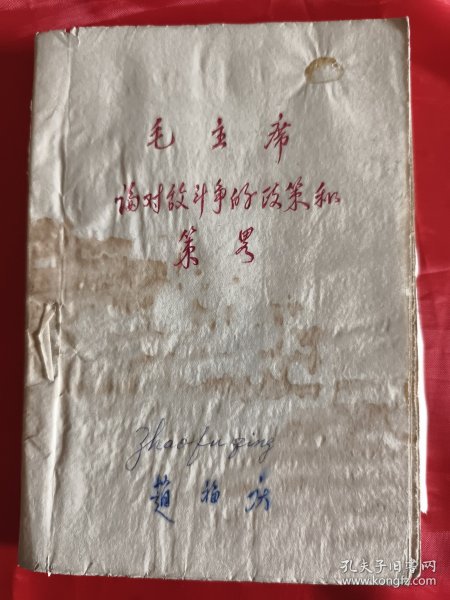 毛主席
论对敌斗争的政策和
策畧
Zhao fu qing
趙福庆
孔夫子旧书网
www.kongfz.com